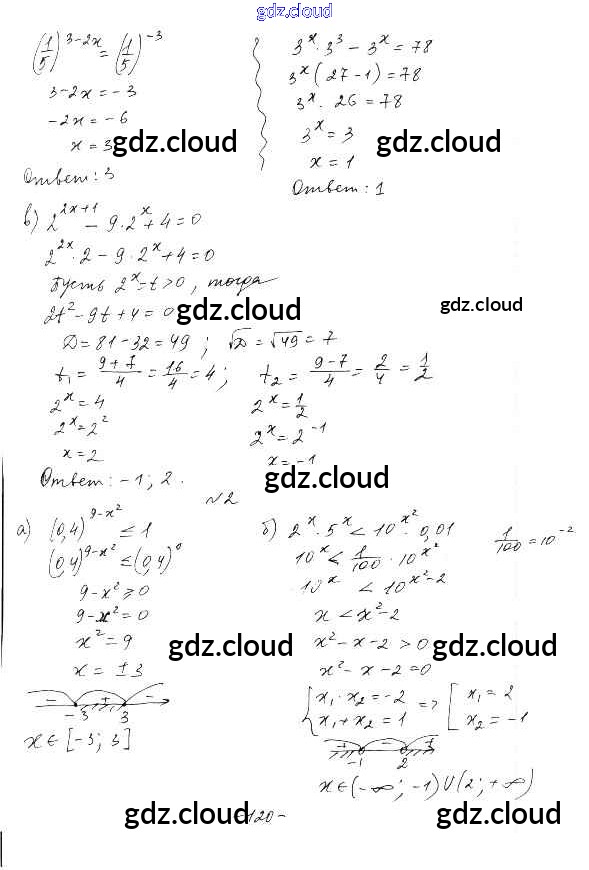 gdz.cloud
(1/5)^(3-2x) = (1/5)^(-3)
3-2x = -3
-2x = -6
x = 3
Ответ: 3
3^x · 3^3 - 3^x = 78
3^x (27-1) = 78
3^x · 26 = 78
3^x = 3
x = 1
Ответ: 1
gdz.cloud
gdz.cloud
в) 2^(2x+1) - 9·2^x + 4 = 0
2^(2x) · 2 - 9·2^x + 4 = 0
Пусть 2^x = t > 0, тогда
2t² - 9t + 4 = 0
gdz.cloud
gdz.cloud
D = 81 - 32 = 49 ; √D = √49 = 7
t₁ = (9+7)/4 = 16/4 = 4 ; t₂ = (9-7)/4 = 2/4 = 1/2
2^x = 4
2^x = 2²
x = 2
2^x = 1/2
2^x = 2^(-1)
x = -1
Ответ: -1; 2.
gdz.cloud
№2
а) (0,4)^(9-x²) ≤ 1
(0,4)^(9-x²) ≤ (0,4)^0
9-x² ≥ 0
9-x² = 0
x² = 9
x = ±3
- + -
-3 3
x ∈ [-3; 3]
б) 2^x · 5^x < 10^(x²) · 0,01
1/100 = 10^(-2)
10^x < 1/100 · 10^(x²)
10^x < 10^(x²-2)
x < x²-2
x² - x - 2 > 0
x² - x - 2 = 0
gdz.cloud
gdz.cloud
{ x₁·x₂ = -2
x₁+x₂ = 1 => [ x₁ = 2
x₂ = -1
+ - +
-1 2
x ∈ (-∞; -1) U (2; +∞)
gdz.cloud
gdz.cloud
-120-